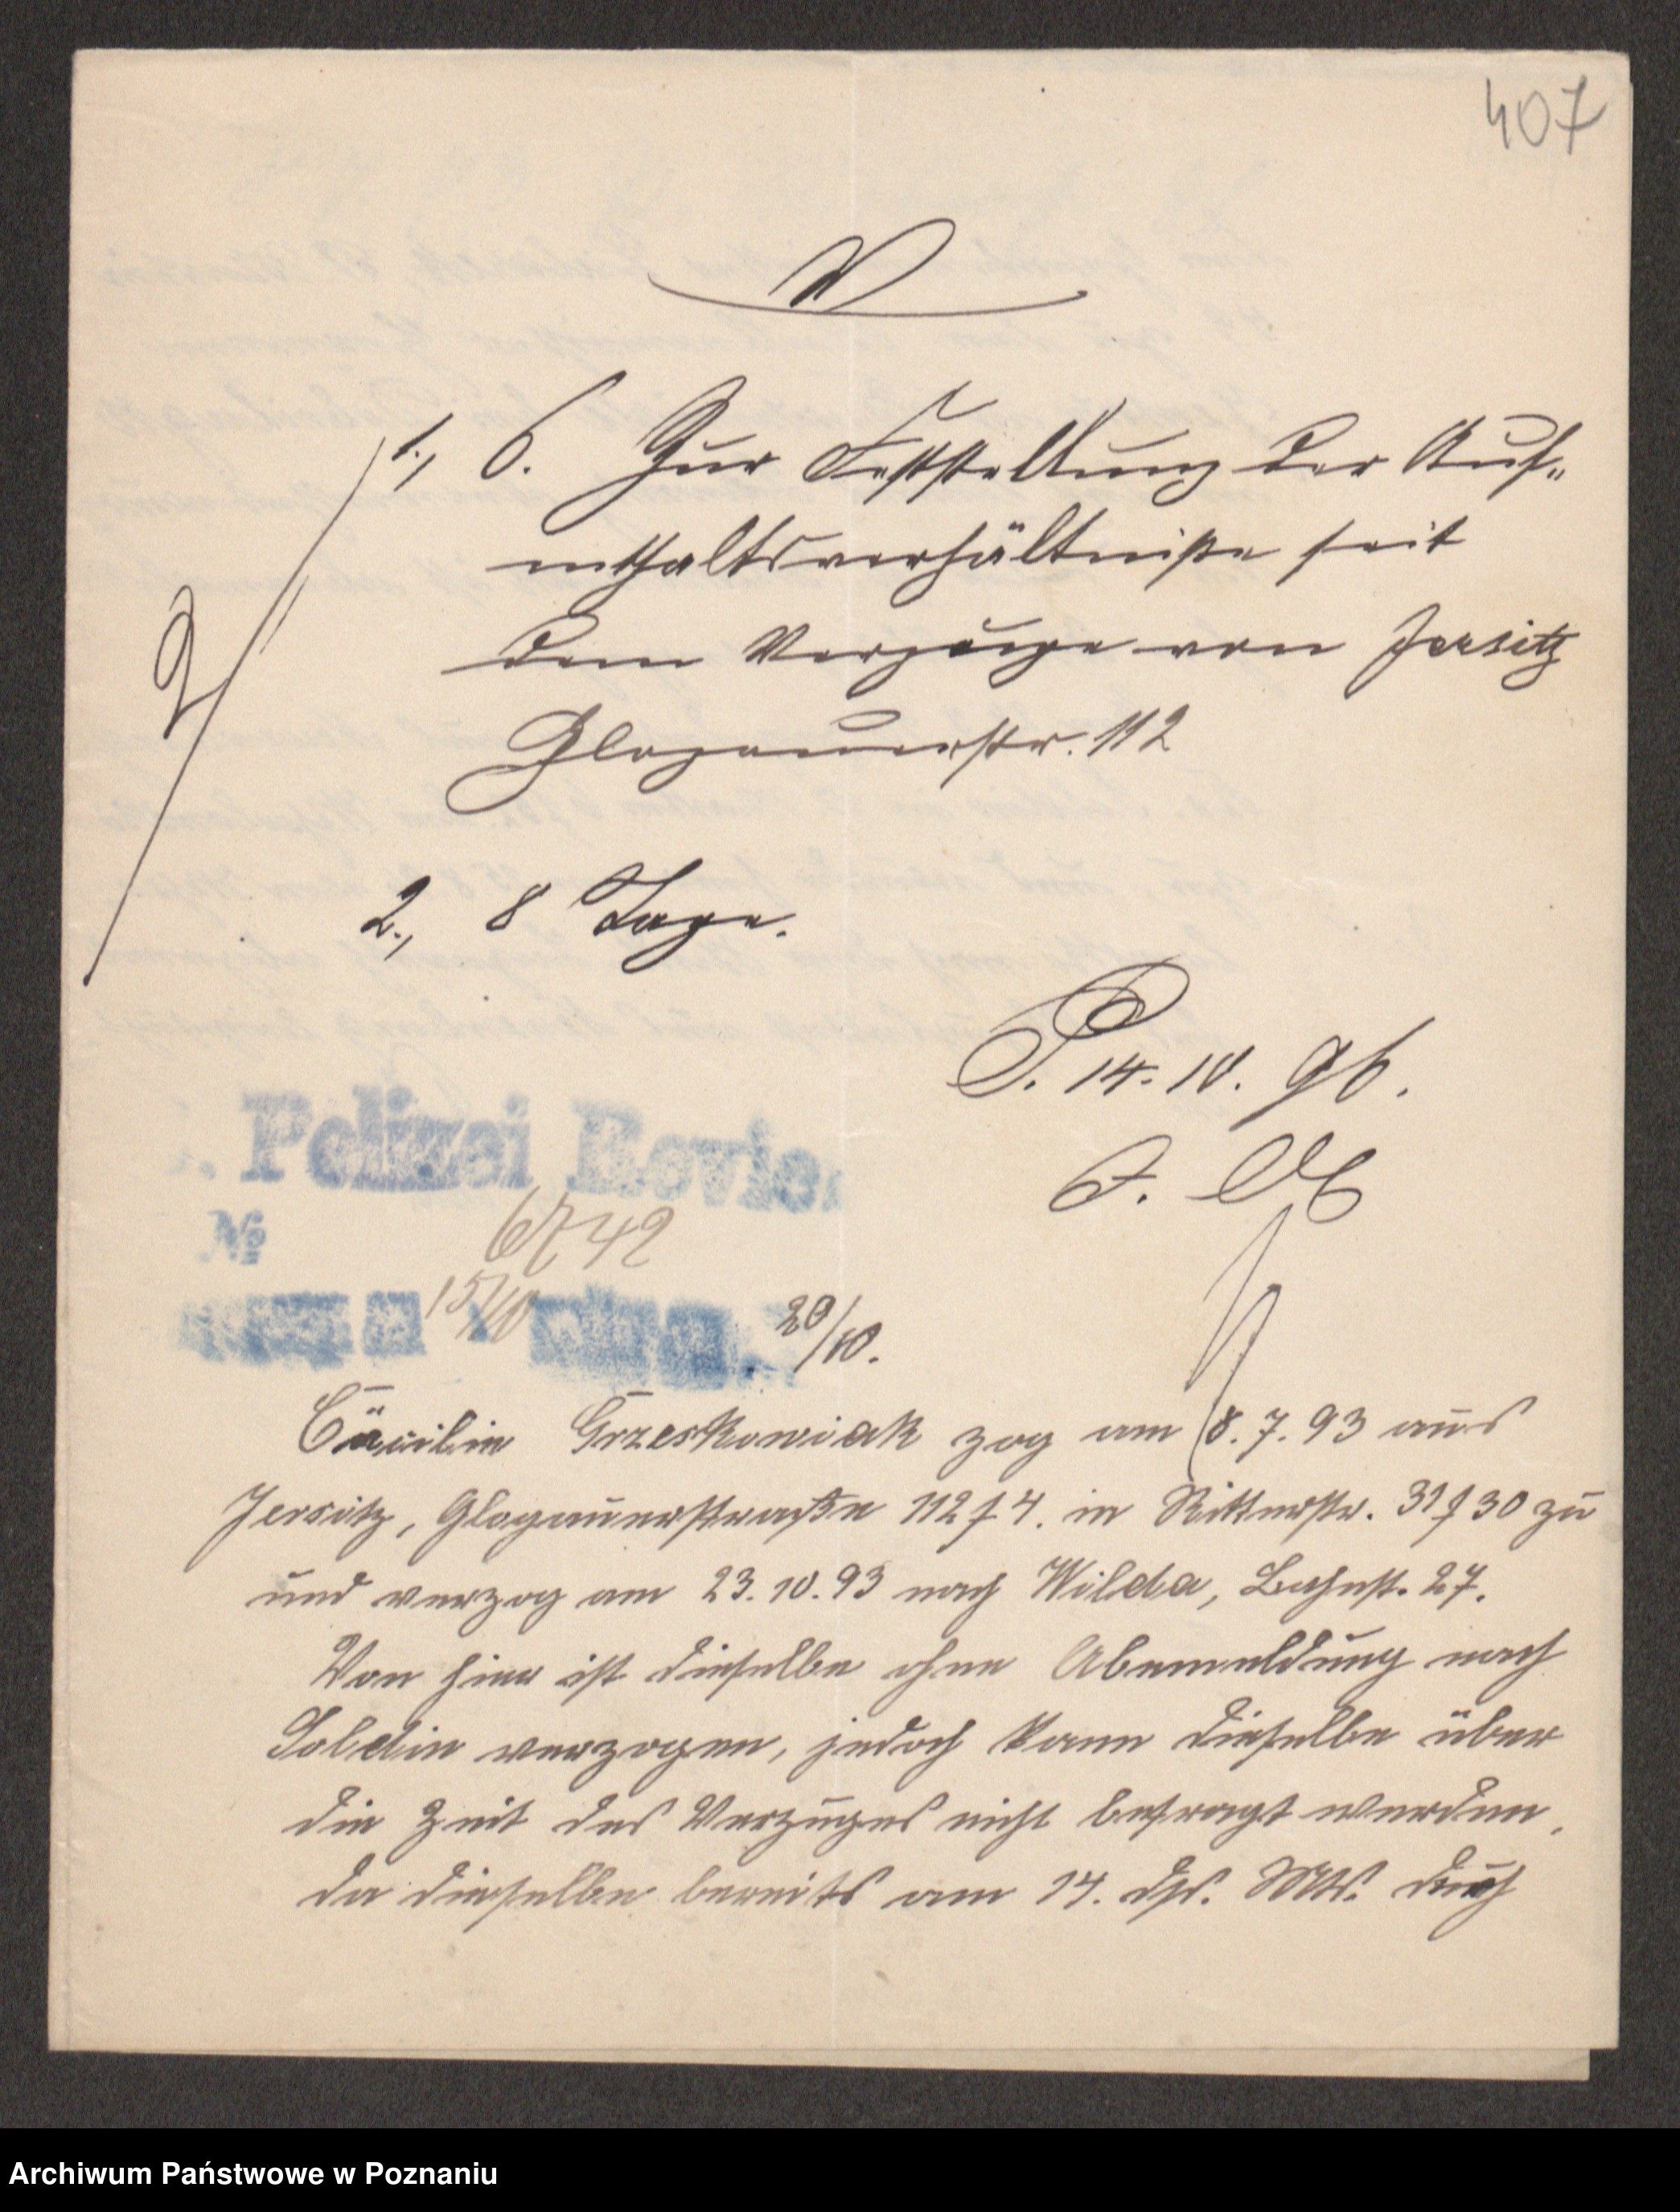 407
V
1., 6. Zur Feststellung der Auf-
enthaltsverhältniße seit
dem Verzuge von Jersitz
Glogauerstr. 112
2., 8 Tage.
P. 14. 10. 96.
Polizei Revier
№ 6742
15/10 20/10.
Cäcilie Grzeskowiak zog am 8. 7. 93 aus
Jersitz, Glogauerstraße 112 f 4. in Ritterstr. 31 f 30 zu
und verzog am 23. 10. 93 nach Wilda, Bahnst. 27.
Von hier ist dieselbe ohne Abemeldung nach
Soldin verzogen, jedoch kann dieselbe über
die Zeit des Verzuges nicht befragt werden,
da dieselbe bereits am 14. ds. Mts. durch
Archiwum Państwowe w Poznaniu